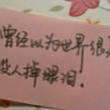 曾经以为世界很
没人掉眼泪.